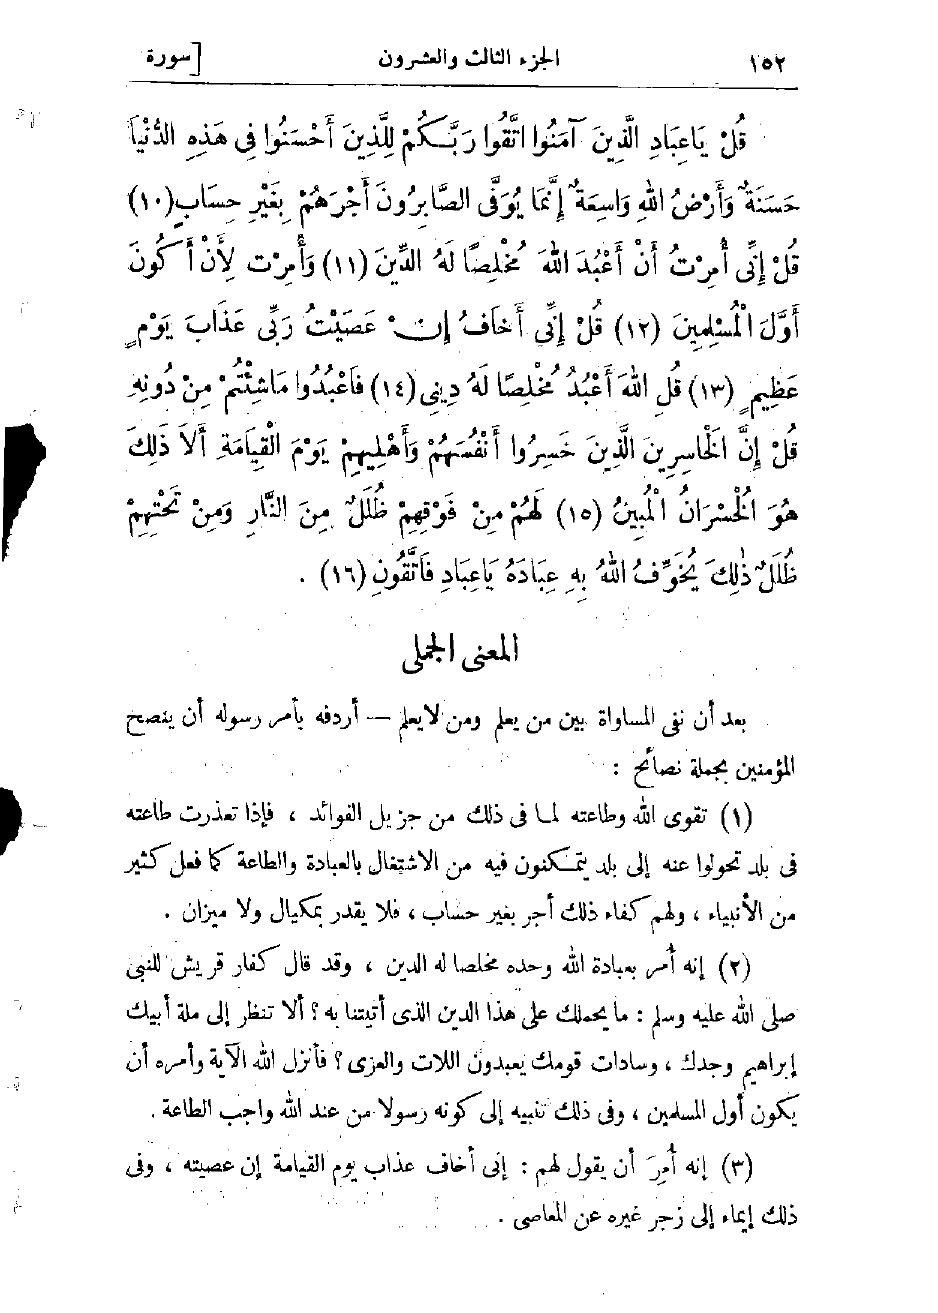 ١٥٢ الجزء الثالث والعشرون [سورة
قُلْ يَاعِبَادِ الَّذِينَ آمَنُوا اتَّقُوا رَبَّكُمْ لِلَّذِينَ أَحْسَنُوا فِى هَذِهِ الدُّنْيَا
حَسَنَةٌ وَأَرْضُ اللهِ وَاسِعَةٌ إِنَّمَا يُوَفَّى الصَّابِرُونَ أَجْرَهُمْ بِغَيْرِ حِسَابٍ (١٠)
قُلْ إِنِّى أُمِرْتُ أَنْ أَعْبُدَ اللهَ مُخْلِصًا لَهُ الدِّينَ (١١) وَأُمِرْت لِأَنْ أَكُونَ
أَوَّلَ الْمُسْلِمِينَ (١٢) قُلْ إِنِّى أَخَافُ إِنْ عَصَيْتُ رَبِّى عَذَابَ يَوْمٍ
عَظِيمٍ (١٣) قُلِ اللهَ أَعْبُدُ مُخْلِصًا لَهُ دِينِى (١٤) فَاعْبُدُوا مَاشِئْتُمْ مِنْ دُونِهِ
قُلْ إِنَّ الْخَاسِرِينَ الَّذِينَ خَسِرُوا أَنْفُسَهُمْ وَأَهْلِيهِمْ يَوْمَ الْقِيَامَةِ أَلاَ ذَلِكَ
هُوَ الْخُسْرَانُ الْمُبِينُ (١٥) لَهُمْ مِنْ فَوْقِهِمْ ظُلَلٌ مِنَ النَّارِ وَمِنْ تَحْتِهِمْ
ظُلَلٌ ذٰلِكَ يُخَوِّفُ اللهُ بِهِ عِبَادَهُ يَاعِبَادِ فَاتَّقُونِ (١٦) .
المعنى الجملى
بعد أن نفى المساواة بين من يعلم ومن لايعلم — أردفه بأمر رسوله أن ينصح
المؤمنين بجملة نصائح :
(١) تقوى الله وطاعته لما فى ذلك من جزيل الفوائد ، فإذا تعذرت طاعته
فى بلد تحولوا عنه إلى بلد يتمكنون فيه من الاشتغال بالعبادة والطاعة كما فعل كثير
من الأنبياء ، ولهم كفاء ذلك أجر بغير حساب ، فلا يقدر بمكيال ولا ميزان .
(٢) إنه أُمر بعبادة الله وحده مخلصا له الدين ، وقد قال كفار قريش للنبى
صلى الله عليه وسلم : ما يحملك على هذا الدين الذى أتيتنا به ؟ ألا تنظر إلى ملة أبيك
إبراهيم وجدك ، وسادات قومك يعبدون اللات والعزى ؟ فأنزل الله الآية وأمره أن
يكون أول المسلمين ، وفى ذلك تنبيه إلى كونه رسولا من عند الله واجب الطاعة .
(٣) إنه أُمِرَ أن يقول لهم : إنى أخاف عذاب يوم القيامة إن عصيته ، وفى
ذلك إيماء إلى زجر غيره عن المعاصى .